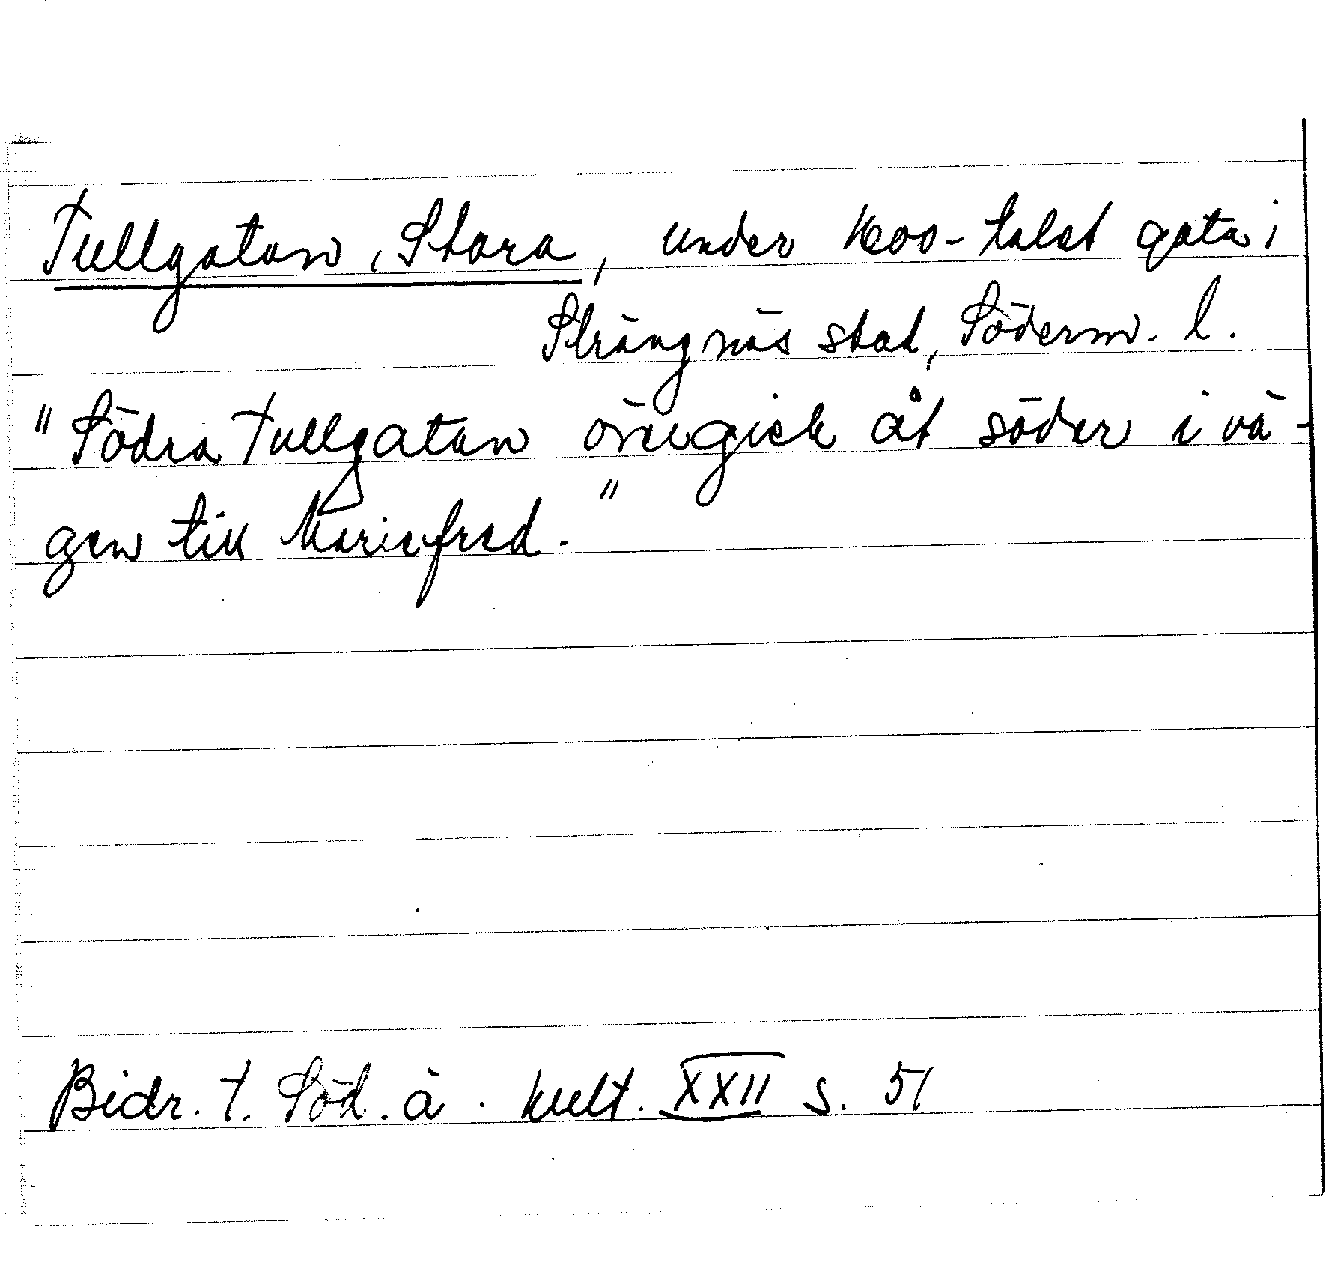 Tullgatan, Stora, under 1600-talet gata i
Strängnäs stad, Söderm. l.
"Södra Tullgatan övergick åt söder i vä-
gen till Mariefred."
Bidr. t. Söd. ä. kult. XXII s. 51